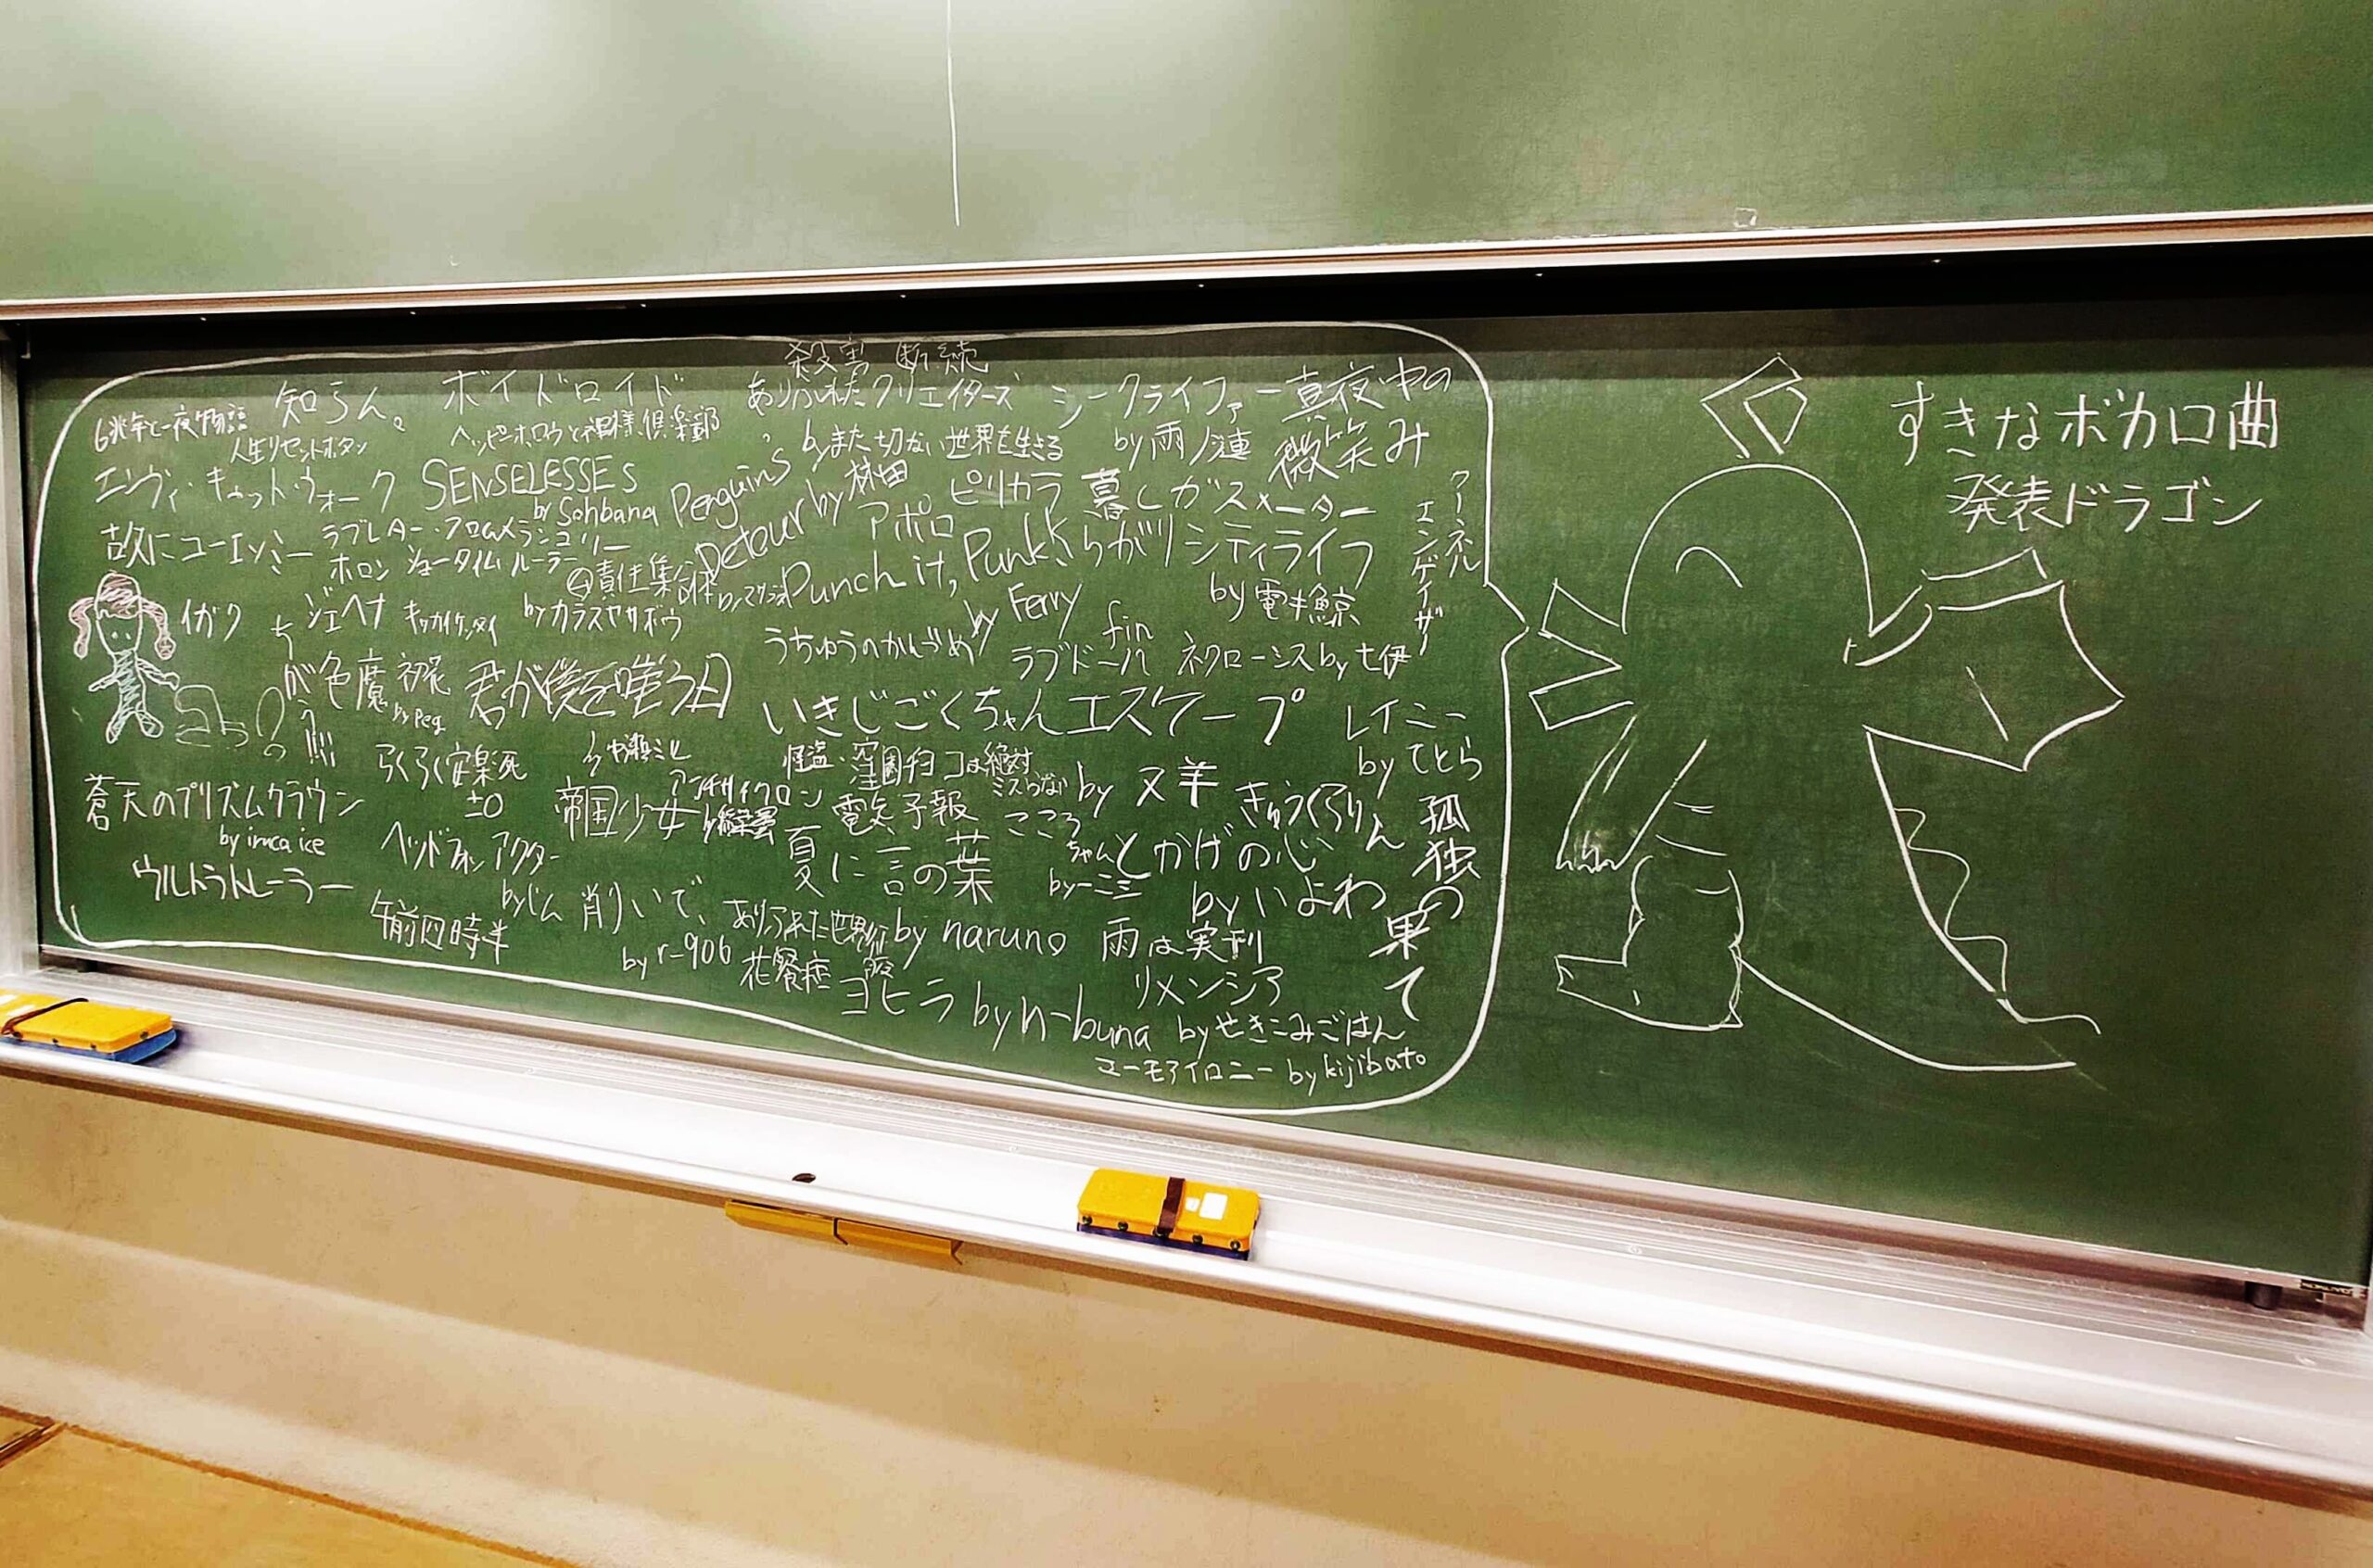 殺害 断続
知らん。
ボイドロイド
ありふれたクリエイターズ
シークライファー
真夜中の
微笑み
6兆年と一夜物語
人生リセットボタン
ハッピーホロウと神様倶楽部
byまた切ない世界を生きる
by 雨ノ漣
エンヴィ・キャットウォーク
SENSELESSES
by Sohbana
Penguins
Detour by 林田
アポロ
ピリカラ
暮しガスメーター
アーネル
エンゲイザー
故にユーエンミー
ラブレター・フロム・メランコリー
ホロン
ショータイムルーラー
責任集合体
Punch it, Punk!
by Ferry
らがりシティライフ
by 電ǂ鯨
イガク
ジェヘナ
キッカイケッタイ
by カラスヤサボウ
うちゅうのかんづめ
fin
ラブドール
ネクローシス by 七伊
ち
が
う
!!!
色魔
初花
by Peg
君が僕を嗤う凶
いきじごくちゃんエスケープ
レイニー
by てとら
らくらく安楽死
±0
怪盗・窪園チヨコは絶対ミスらない
by ヌ羊
蒼天のプリズムクラウン
by inuca ice
帝国少女
アンチサイクロン
電気予報
こころ
ちゃん
きゅうくらりん
孤独の果て
ヘッドフォンアクター
by じん
夏に言の葉
by 一二三
とかげの心
by いよわ
ウルトラトレーラー
午前四時半
削いで、
by r-906
ありふれた世界征服
by naruno
雨は実刑
花瞖症
リメンシア
ヨヒラ by n-buna
by せきこみごはん
ユーモアイロニー by kijibato
すきなボカロ曲
発表ドラゴン